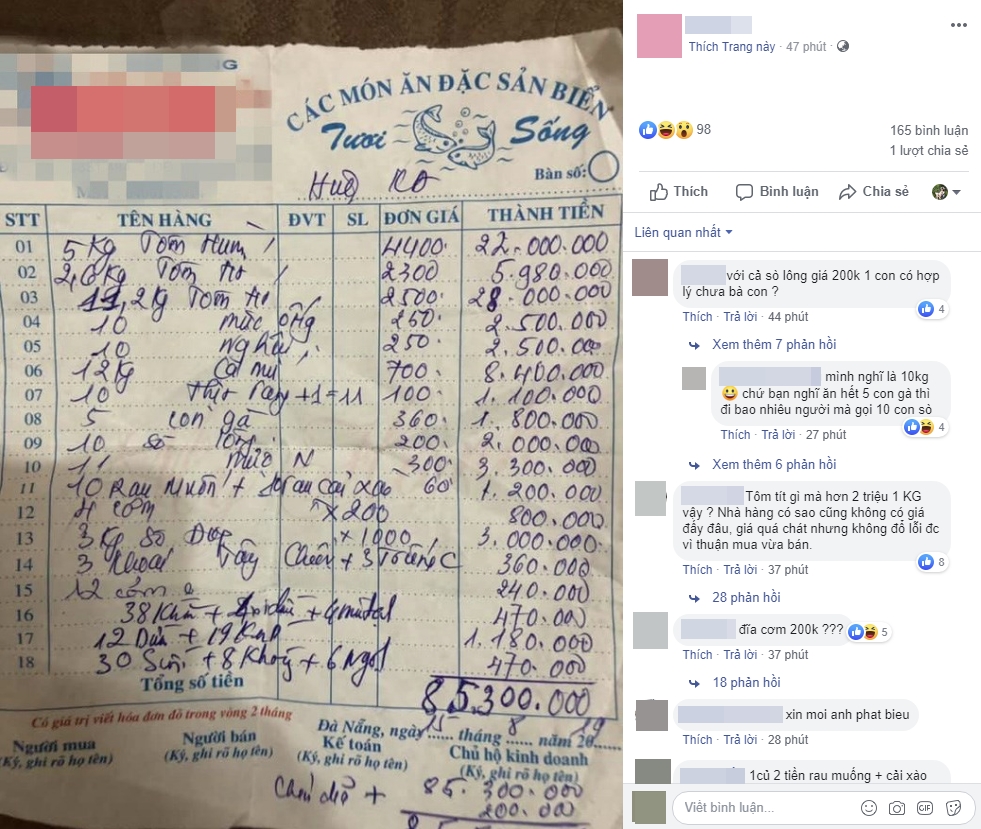 CÁC MÓN ĂN ĐẶC SẢN BIỂN
Tươi Sống
Bàn số:
Huệ
STT TÊN HÀNG ĐVT SL ĐƠN GIÁ THÀNH TIỀN
01 5 Kg Tôm Hum 4400 22.000.000
02 2,6 Kg Tôm 2300 5.980.000
03 11,2 Kg Tôm 2500 28.000.000
04 10 mực 250 2.500.000
05 10 nghêu 250 2.500.000
06 12 Kg Cá mú 700 8.400.000
07 10 +1=11 100 1.100.000
08 5 con gà 360 1.800.000
09 10 Sò lông 200 2.000.000
10 11 mực N 300 3.300.000
11 10 Rau Muốn + 10 rau cải xào 60 1.200.000
12 4 cơm x 200 800.000
13 3 Kg Sò x 1000 3.000.000
14 3 Khoai Tây Chiên + 3 Trứng C 360.000
15 12 cơm 240.000
16 38 Khăn + + 470.000
17 12 + 19 1.180.000
18 30 + 8 + 6 470.000
Tổng số tiền 85.300.000
Có giá trị viết hóa đơn đỏ trong vòng 2 tháng
Đà Nẵng, ngày 15 tháng 8 năm 2019
Người mua Người bán Kế toán Chủ hộ kinh doanh
(Ký, ghi rõ họ tên) (Ký, ghi rõ họ tên) (Ký, ghi rõ họ tên) (Ký, ghi rõ họ tên)
+ 85.300.000
200.00
Thích Trang này · 47 phút ·
98
165 bình luận
1 lượt chia sẻ
Thích Bình luận Chia sẻ
Liên quan nhất
với cả sò lông giá 200k 1 con có hợp
lý chưa bà con ?
4
Thích · Trả lời · 44 phút
Xem thêm 7 phản hồi
mình nghĩ là 10kg
chứ bạn nghĩ ăn hết 5 con gà thì
đi bao nhiêu người mà gọi 10 con sò
4
Thích · Trả lời · 27 phút
Xem thêm 6 phản hồi
Tôm tít gì mà hơn 2 triệu 1 KG
vậy ? Nhà hàng có sao cũng không có giá
đấy đâu, giá quá chát nhưng không đổ lỗi đc
vì thuận mua vừa bán.
8
Thích · Trả lời · 37 phút
28 phản hồi
đĩa cơm 200k ???
5
Thích · Trả lời · 37 phút
18 phản hồi
xin moi anh phat bieu
Thích · Trả lời · 28 phút
1củ 2 tiền rau muống + cải xào
Viết bình luận...
GIF